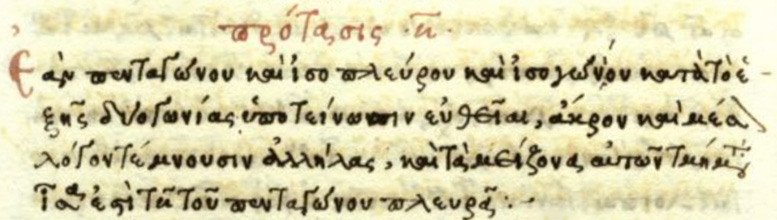 πρότασις ·η̄·
Ἐὰν πενταγώνου καὶ ἰσοπλεύρου καὶ ἰσογωνίου κατὰ τὸ ἑ-
ξῆς δύο γωνίας ὑποτείνωσιν εὐθεῖαι, ἄκρον καὶ μέσ
λόγον τέμνουσιν ἀλλήλας, καὶ τὰ μείζονα αὐτῶν τμήμ
τα ἴσα ἐστὶ τῇ τοῦ πενταγώνου πλευρᾷ:-